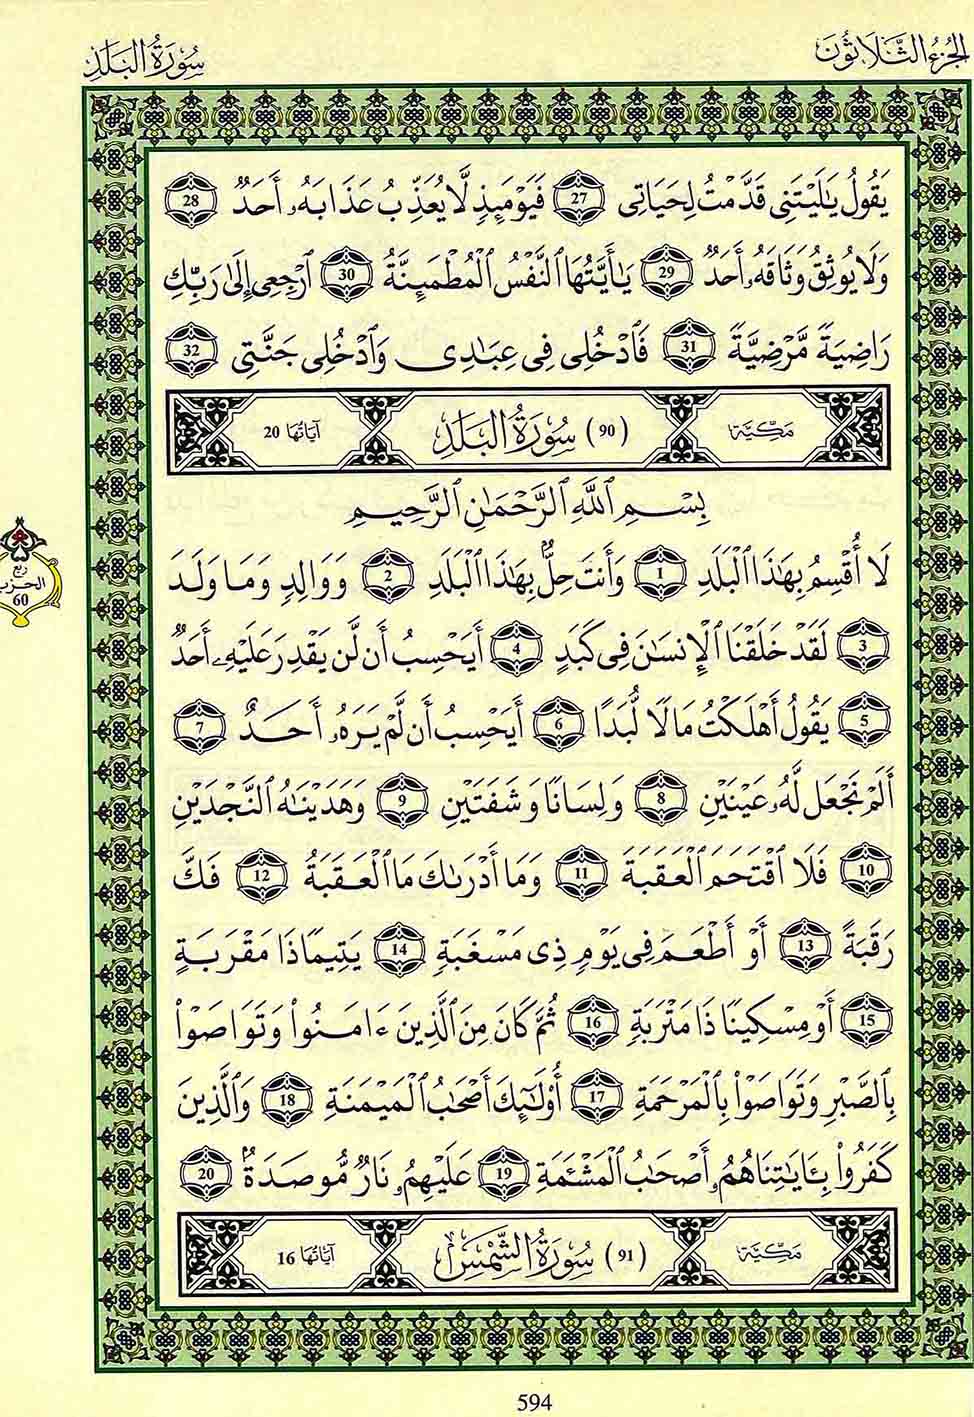 الجزء الثلاثون
سورة البلد
يَقُولُ يَٰلَيْتَنِى قَدَّمْتُ لِحَيَاتِى 27 فَيَوْمَئِذٍ لَّا يُعَذِّبُ عَذَابَهُۥ أَحَدٌ 28
وَلَا يُوثِقُ وَثَاقَهُۥ أَحَدٌ 29 يَٰأَيَّتُهَا ٱلنَّفْسُ ٱلْمُطْمَئِنَّةُ 30 ٱرْجِعِى إِلَىٰ رَبِّكِ
رَاضِيَةً مَّرْضِيَّةً 31 فَٱدْخُلِى فِى عِبَٰدِى وَٱدْخُلِى جَنَّتِى 32
مكية (90) سورة البلد آياتها 20
بِسْمِ ٱللَّهِ ٱلرَّحْمَٰنِ ٱلرَّحِيمِ
لَا أُقْسِمُ بِهَٰذَا ٱلْبَلَدِ 1 وَأَنتَ حِلٌّۢ بِهَٰذَا ٱلْبَلَدِ 2 وَوَالِدٍ وَمَا وَلَدَ
ربع
الحزب
60
3 لَقَدْ خَلَقْنَا ٱلْإِنسَٰنَ فِى كَبَدٍ 4 أَيَحْسِبُ أَن لَّن يَقْدِرَ عَلَيْهِۦ أَحَدٌ
5 يَقُولُ أَهْلَكْتُ مَالًا لُّبَدًا 6 أَيَحْسِبُ أَن لَّمْ يَرَهُۥ أَحَدٌ 7
أَلَمْ نَجْعَل لَّهُۥ عَيْنَيْنِ 8 وَلِسَانًا وَشَفَتَيْنِ 9 وَهَدَيْنَٰهُ ٱلنَّجْدَيْنِ
10 فَلَا ٱقْتَحَمَ ٱلْعَقَبَةَ 11 وَمَا أَدْرَىٰكَ مَا ٱلْعَقَبَةُ 12 فَكَّ
رَقَبَةً 13 أَوْ أَطْعَمَ فِى يَوْمٍ ذِى مَسْغَبَةٍ 14 يَتِيمًا ذَا مَقْرَبَةٍ
15 أَوْ مِسْكِينًا ذَا مَتْرَبَةٍ 16 ثُمَّ كَانَ مِنَ ٱلَّذِينَ ءَامَنُوا۟ وَتَوَاصَوْا۟
بِٱلصَّبْرِ وَتَوَاصَوْا۟ بِٱلْمَرْحَمَةِ 17 أُو۟لَٰئِكَ أَصْحَٰبُ ٱلْمَيْمَنَةِ 18 وَٱلَّذِينَ
كَفَرُوا۟ بِـَٔايَٰتِنَا هُمُۥ أَصْحَٰبُ ٱلْمَشْـَٔمَةِ 19 عَلَيْهِمُۥ نَارٌ مُّوصَدَةٌۢ 20
مكية (91) سورة الشمس آياتها 16
594